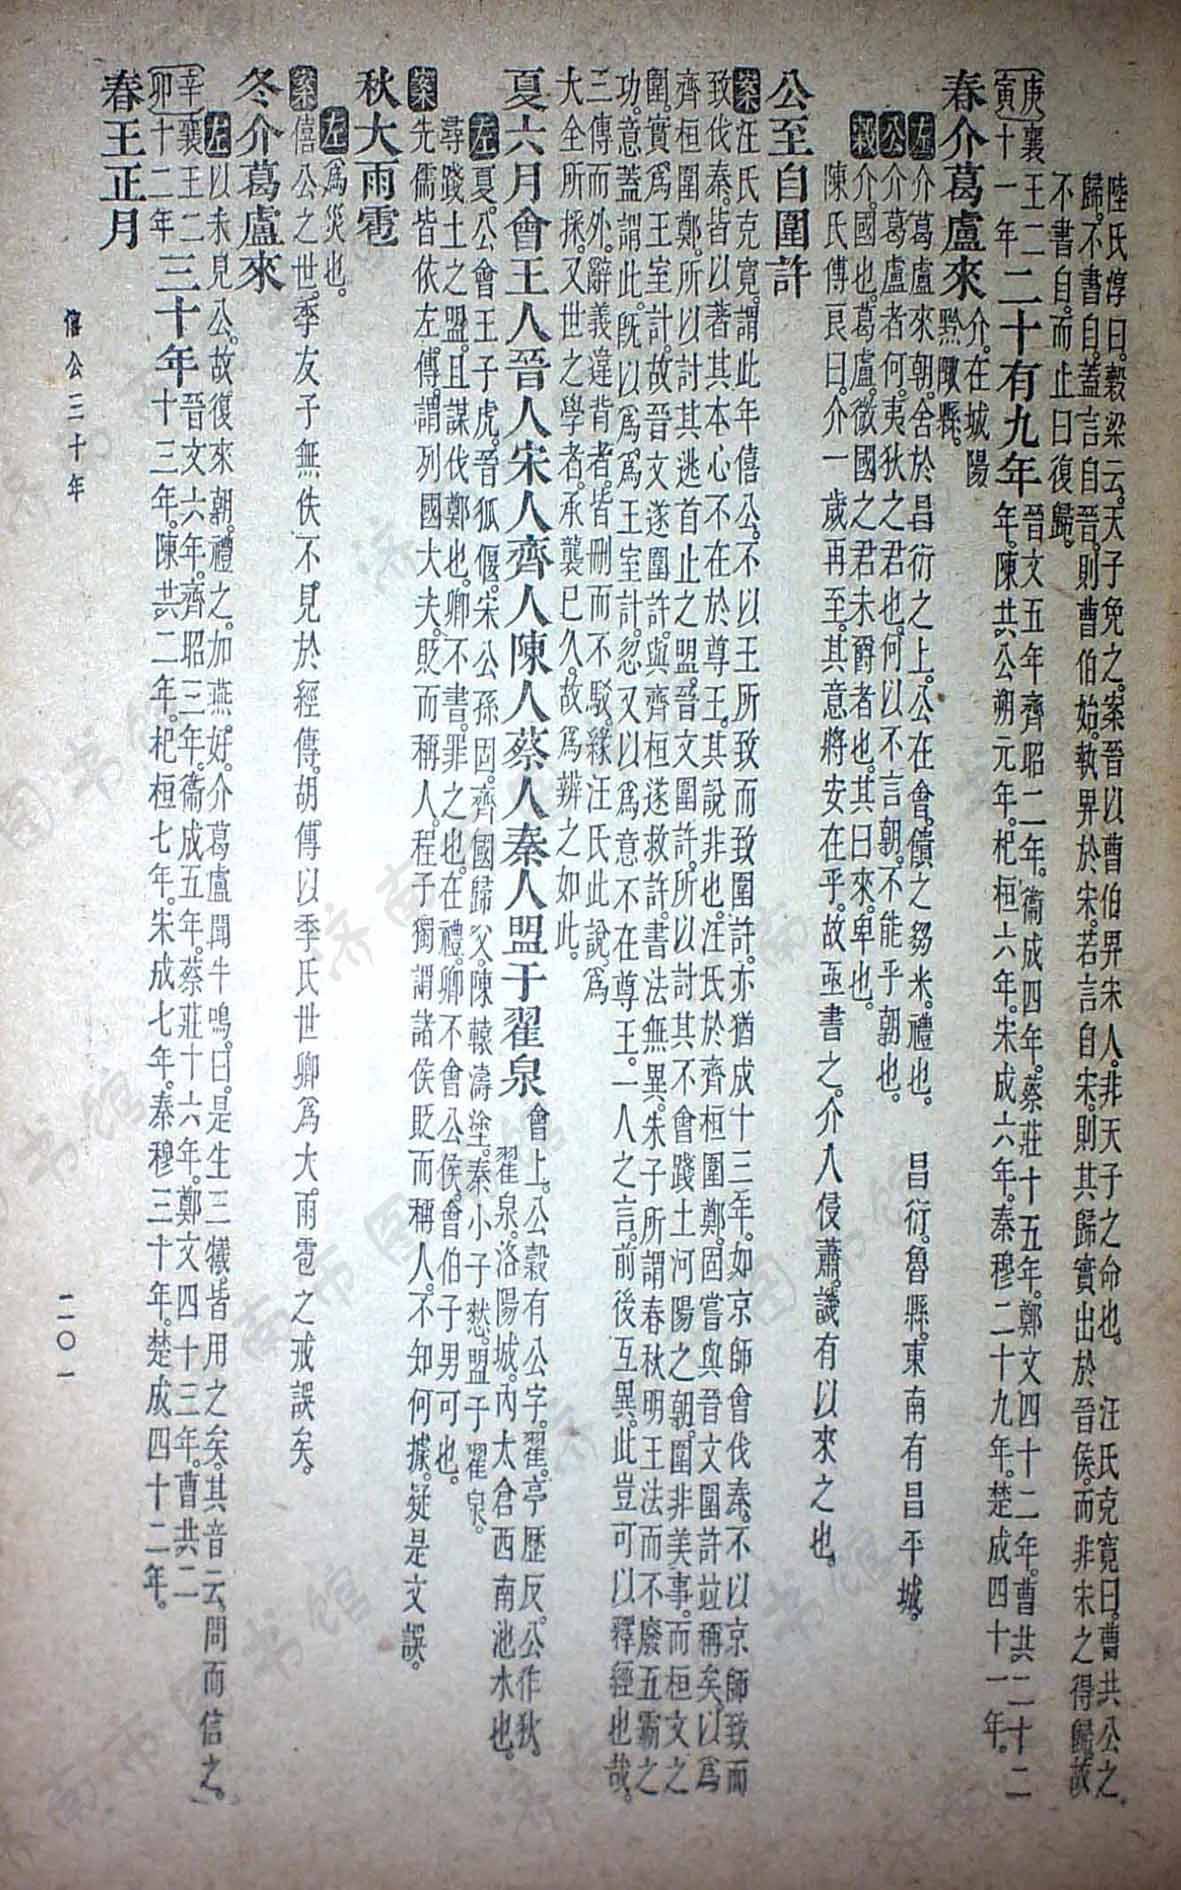 陸氏淳曰。穀梁云。天子免之。案晉以曹伯畀宋人。非天子之命也。　汪氏克寬曰。曹共公之
歸。不書自。蓋言自晉。則曹伯始執畀於宋。若言自宋。則其歸實出於晉侯。而非宋之得歸。故
不書自。而止曰復歸。
庚寅 襄王二十一年 二十有九年 晉文五年。齊昭二年。衞成四年。蔡莊十五年。鄭文四十二年。曹共二十二年。陳共公朔元年。杞桓六年。宋成六年。秦穆二十九年。楚成四十一年。
春介葛盧來 介。在城陽黔陬縣。
左 介葛盧來朝。舍於昌衍之上。公在會。饋之芻米。禮也。　昌衍。魯縣。東南有昌平城。
公 介葛盧者何。夷狄之君也。何以不言朝。不能乎朝也。
穀 介。國也。葛盧。微國之君未爵者也。其曰來。卑也。
陳氏傅良曰。介一歲再至。其意將安在乎。故亟書之。介人侵蕭。譏有以來之也。
公至自圍許
案 汪氏克寬。謂此年僖公。不以王所致而致圍許。亦猶成十三年。如京師會伐秦。不以京師致而
致伐秦。皆以著其本心不在於尊王。其說非也。汪氏於齊桓圍鄭。固嘗與晉文圍許竝稱矣。以爲
齊桓圍鄭。所以討其逃首止之盟。晉文圍許。所以討其不會踐土河陽之朝。圍非美事。而桓文之
圍。實爲王室計。故晉文遂圍許。與齊桓遂救許。書法無異。朱子所謂春秋明王法而不廢五霸之
功。意蓋謂此。旣以爲爲王室計。忽又以爲意不在尊王。一人之言。前後互異。此豈可以釋經也哉。
三傳而外。辭義違背者。皆刪而不駁。緣汪氏此說。爲
大全所採。又世之學者。承襲已久。故爲辨之如此。
夏六月會王人晉人宋人齊人陳人蔡人秦人盟于翟泉 會上。公穀有公字。翟。亭歷反。公作狄。翟泉。洛陽城。內太倉西南池水也。
左 夏。公會王子虎。晉狐偃。宋公孫固。齊國歸父。陳轅濤塗。秦小子憗。盟于翟泉。
尋踐土之盟。且謀伐鄭也。卿不書。罪之也。在禮。卿不會公侯。會伯子男可也。
案 先儒皆依左傳。謂列國大夫。貶而稱人。程子獨謂諸侯貶而稱人。不知何據。疑是文誤。
秋大雨雹
左 爲災也。
案 僖公之世。季友子無佚。不見於經傳。胡傳以季氏世卿爲大雨雹之戒。誤矣。
冬介葛盧來
左 以未見公。故復來朝。禮之。加燕好。介葛盧聞牛鳴。曰。是生三犧。皆用之矣。其音云。問而信之。
辛卯 襄王二十二年 三十年 晉文六年。齊昭三年。衞成五年。蔡莊十六年。鄭文四十三年。曹共二十三年。陳共二年。杞桓七年。宋成七年。秦穆三十年。楚成四十二年。
春王正月
僖公三十年
二〇一